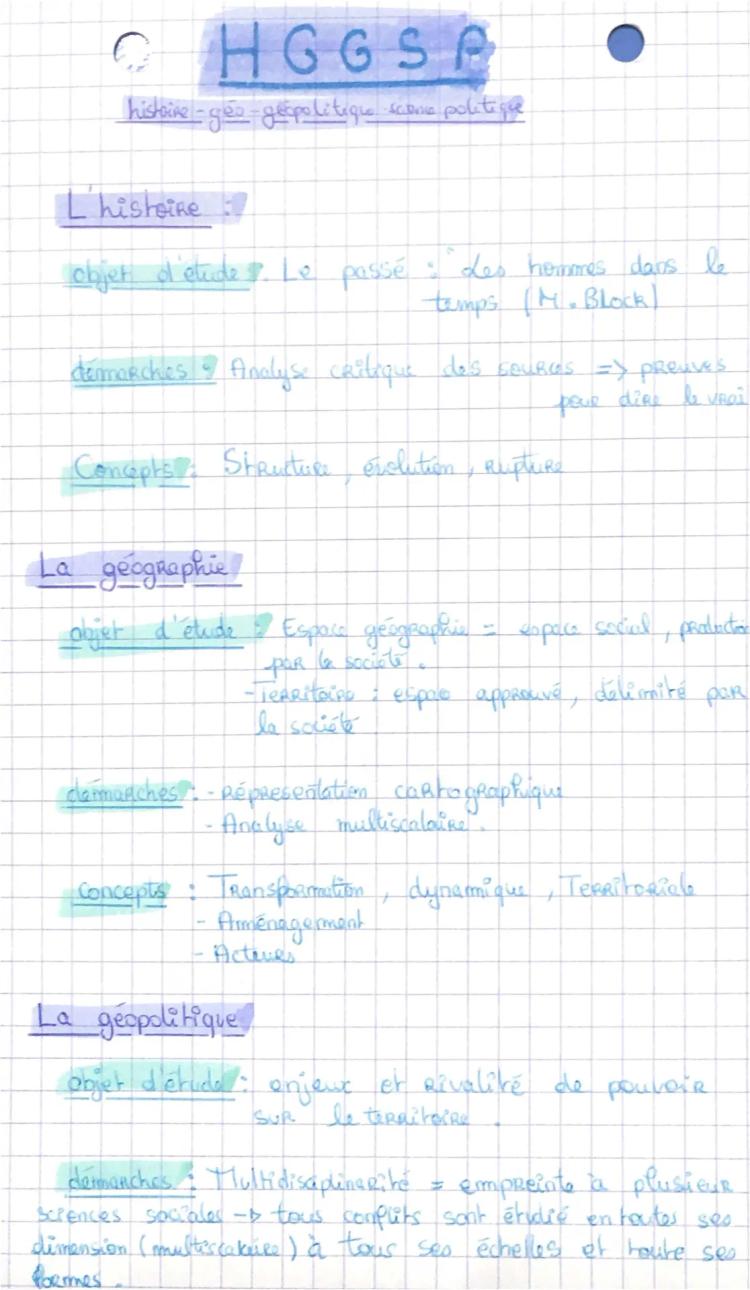 HGGSP
histoire-géo-géopolitique science politique
L'histoire :
objet d'étude : Le passé : "des hommes dans le
temps (M. Block)
démarches : Analyse critique des sources => preuves
pour dire le vrai
Concepts : Structure, évolution, rupture
La géographie
objet d'étude : Espace géographie = espace social, production
par la société.
-Territoire : espace approuvé, délimité par
la société
démarches : - Répresentation cartographique
- Analyse multiscalaire.
Concepts : Transformation, dynamique, Territoriale
- Aménagement
- Acteurs
La géopolitique
objet d'étude : enjeux et rivalité de pouvoir
sur le territoire.
démarches : Multidisciplinarité = empreinte à plusieur
sciences sociales -> tous conflits sont étudié en toutes ses
dimension (multiscalaire) à tous ses échelles et toute ses
formes.